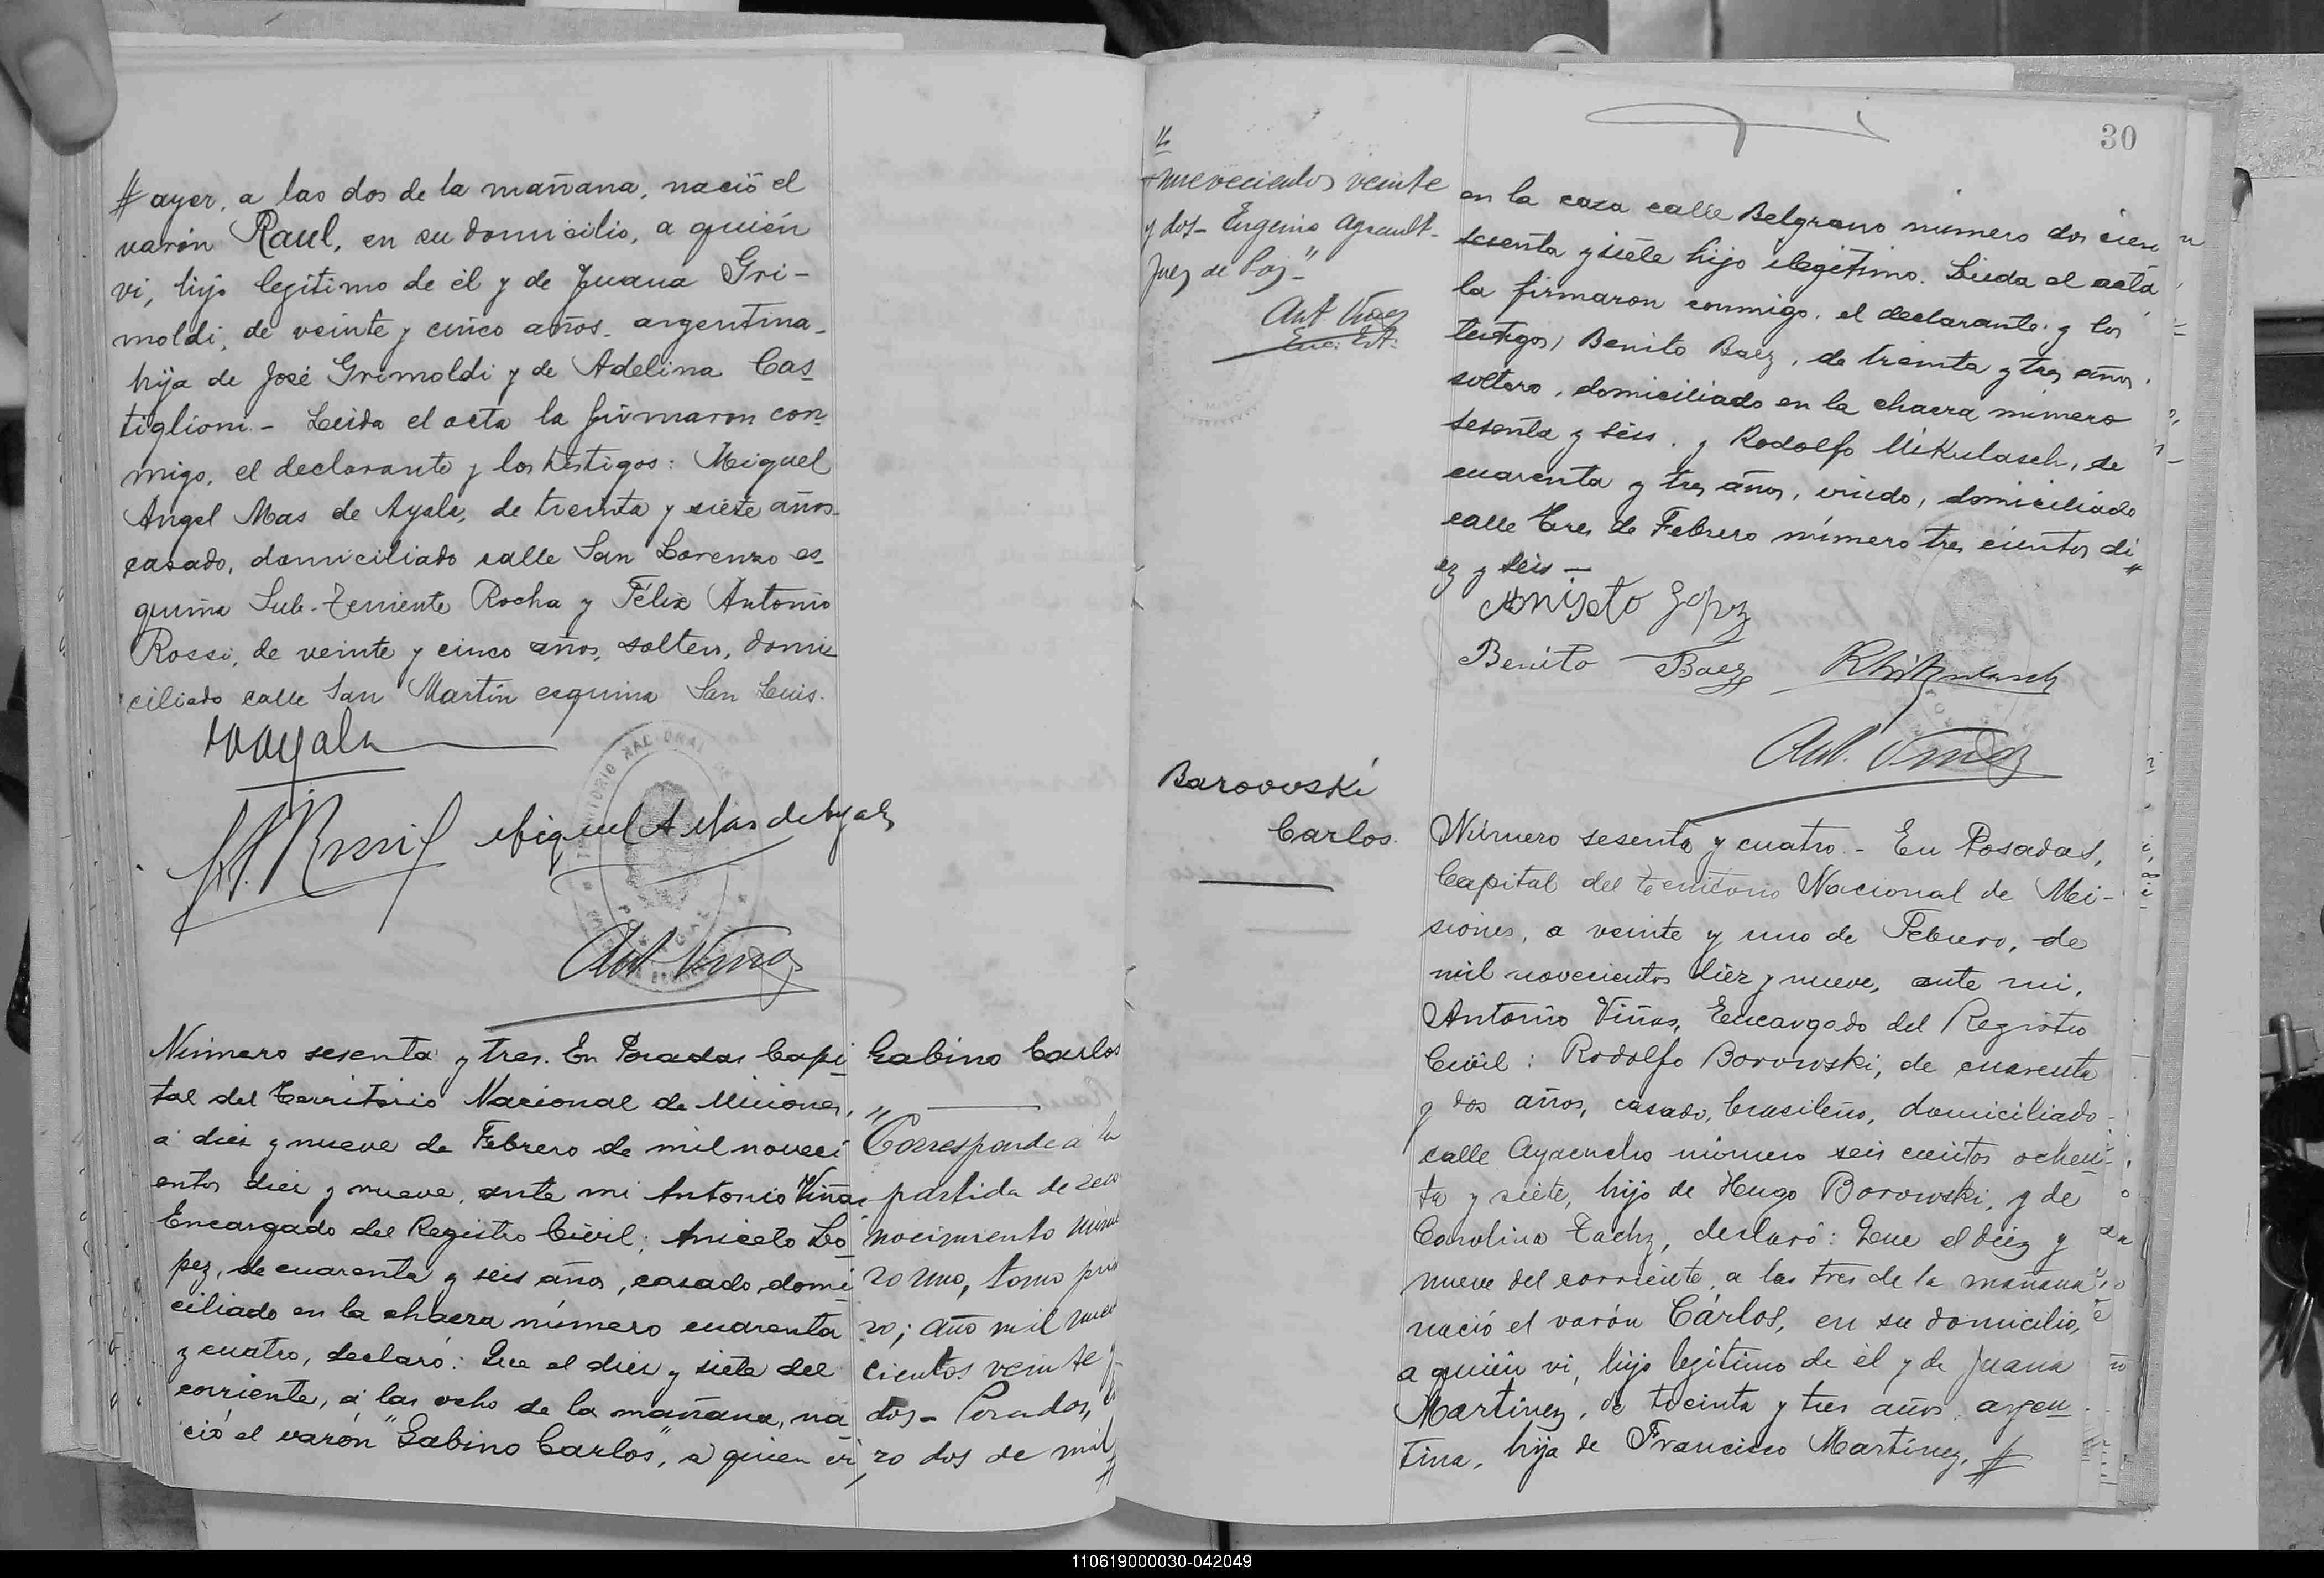 # ayer, a las dos de la mañana, nació el
varón Raul, en su domicilio, a quién
vi, hijo legítimo de él y de Juana Gri-
moldi, de veinte y cinco años, argentina,
hija de José Grimoldi y de Adelina Cas
tiglioni.- Leida el acta la firmaron con
migo, el declarante y los testigos: Miguel
Angel Mas de Ayala, de treinta y siete años
casado, domiciliado calle San Lorenzo es
quina Sub-Teniente Rocha y Félix Antonio
Rossi, de veinte y cinco años, soltero, domi
ciliado calle San Martín esquina San Luis.
Miguel A Mas de Ayala
TERRITORIO NACIONAL DE
Ant. Viñas
Número sesenta y tres. En Posadas Capi
tal del Territorio Nacional de Misiones,
a diez y nueve de Febrero de mil noveci
entos diez y nueve, ante mi Antonio Viñas
Encargado del Registro Civil; Aniceto Lo
pez, de cuarenta y seis años, casado, domi
ciliado en la chacra número cuarenta
y cuatro, declaró: Que el diez y siete del
corriente, a las ocho de la mañana, na
ció el varón "Gabino Carlos", a quien vi
Gabino Carlos
"Corresponde a la
partida de reco
nocimiento núme
ro uno, tomo prime
ro; año mil nueve
cientos veinte y
dos- Posadas,
ro dos de mil
#
#
nuevecientos veinte
y dos- Eugenio Agrault-
Juez de Paz-"
Ant. Viñas
Enc. Int.
30
en la casa calle Belgrano número dos cien
sesenta y siete hijo ilegítimo. Leida el acta
la firmaron conmigo, el declarante y los
testigos, Benito Baez, de treinta y tres años,
soltero, domiciliado en la chacra número
sesenta y seis, y Rodolfo Mikulasch, de
cuarenta y tres años, viudo, domiciliado
calle Tres de Febrero número tres cientos di
ez y seis —
Aniseto Lopz
Benito Baez RMikulasch
Ant. Viñas
Barowski
Carlos.
Número sesenta y cuatro.- En Posadas,
Capital del territorio Nacional de Mi-
siones, a veinte y uno de Febrero, de
mil novecientos diez y nueve, ante mi,
Antonio Viñas, Encargado del Registro
Civil: Rodolfo Borowski, de cuarenta
y dos años, casado, brasileño, domiciliado
calle Ayacucho número seis cientos ochen-
ta y siete, hijo de Hugo Borowski, y de
Carolina Tachz, declaró: Que el diez y
nueve del corriente, a las tres de la mañana
nació el varón Cárlos, en su domicilio,
a quién vi, hijo legítimo de él y de Juana
Martinez, de treinta y tres años, argen
tina, hija de Francisco Martinez, #
110619000030-042049